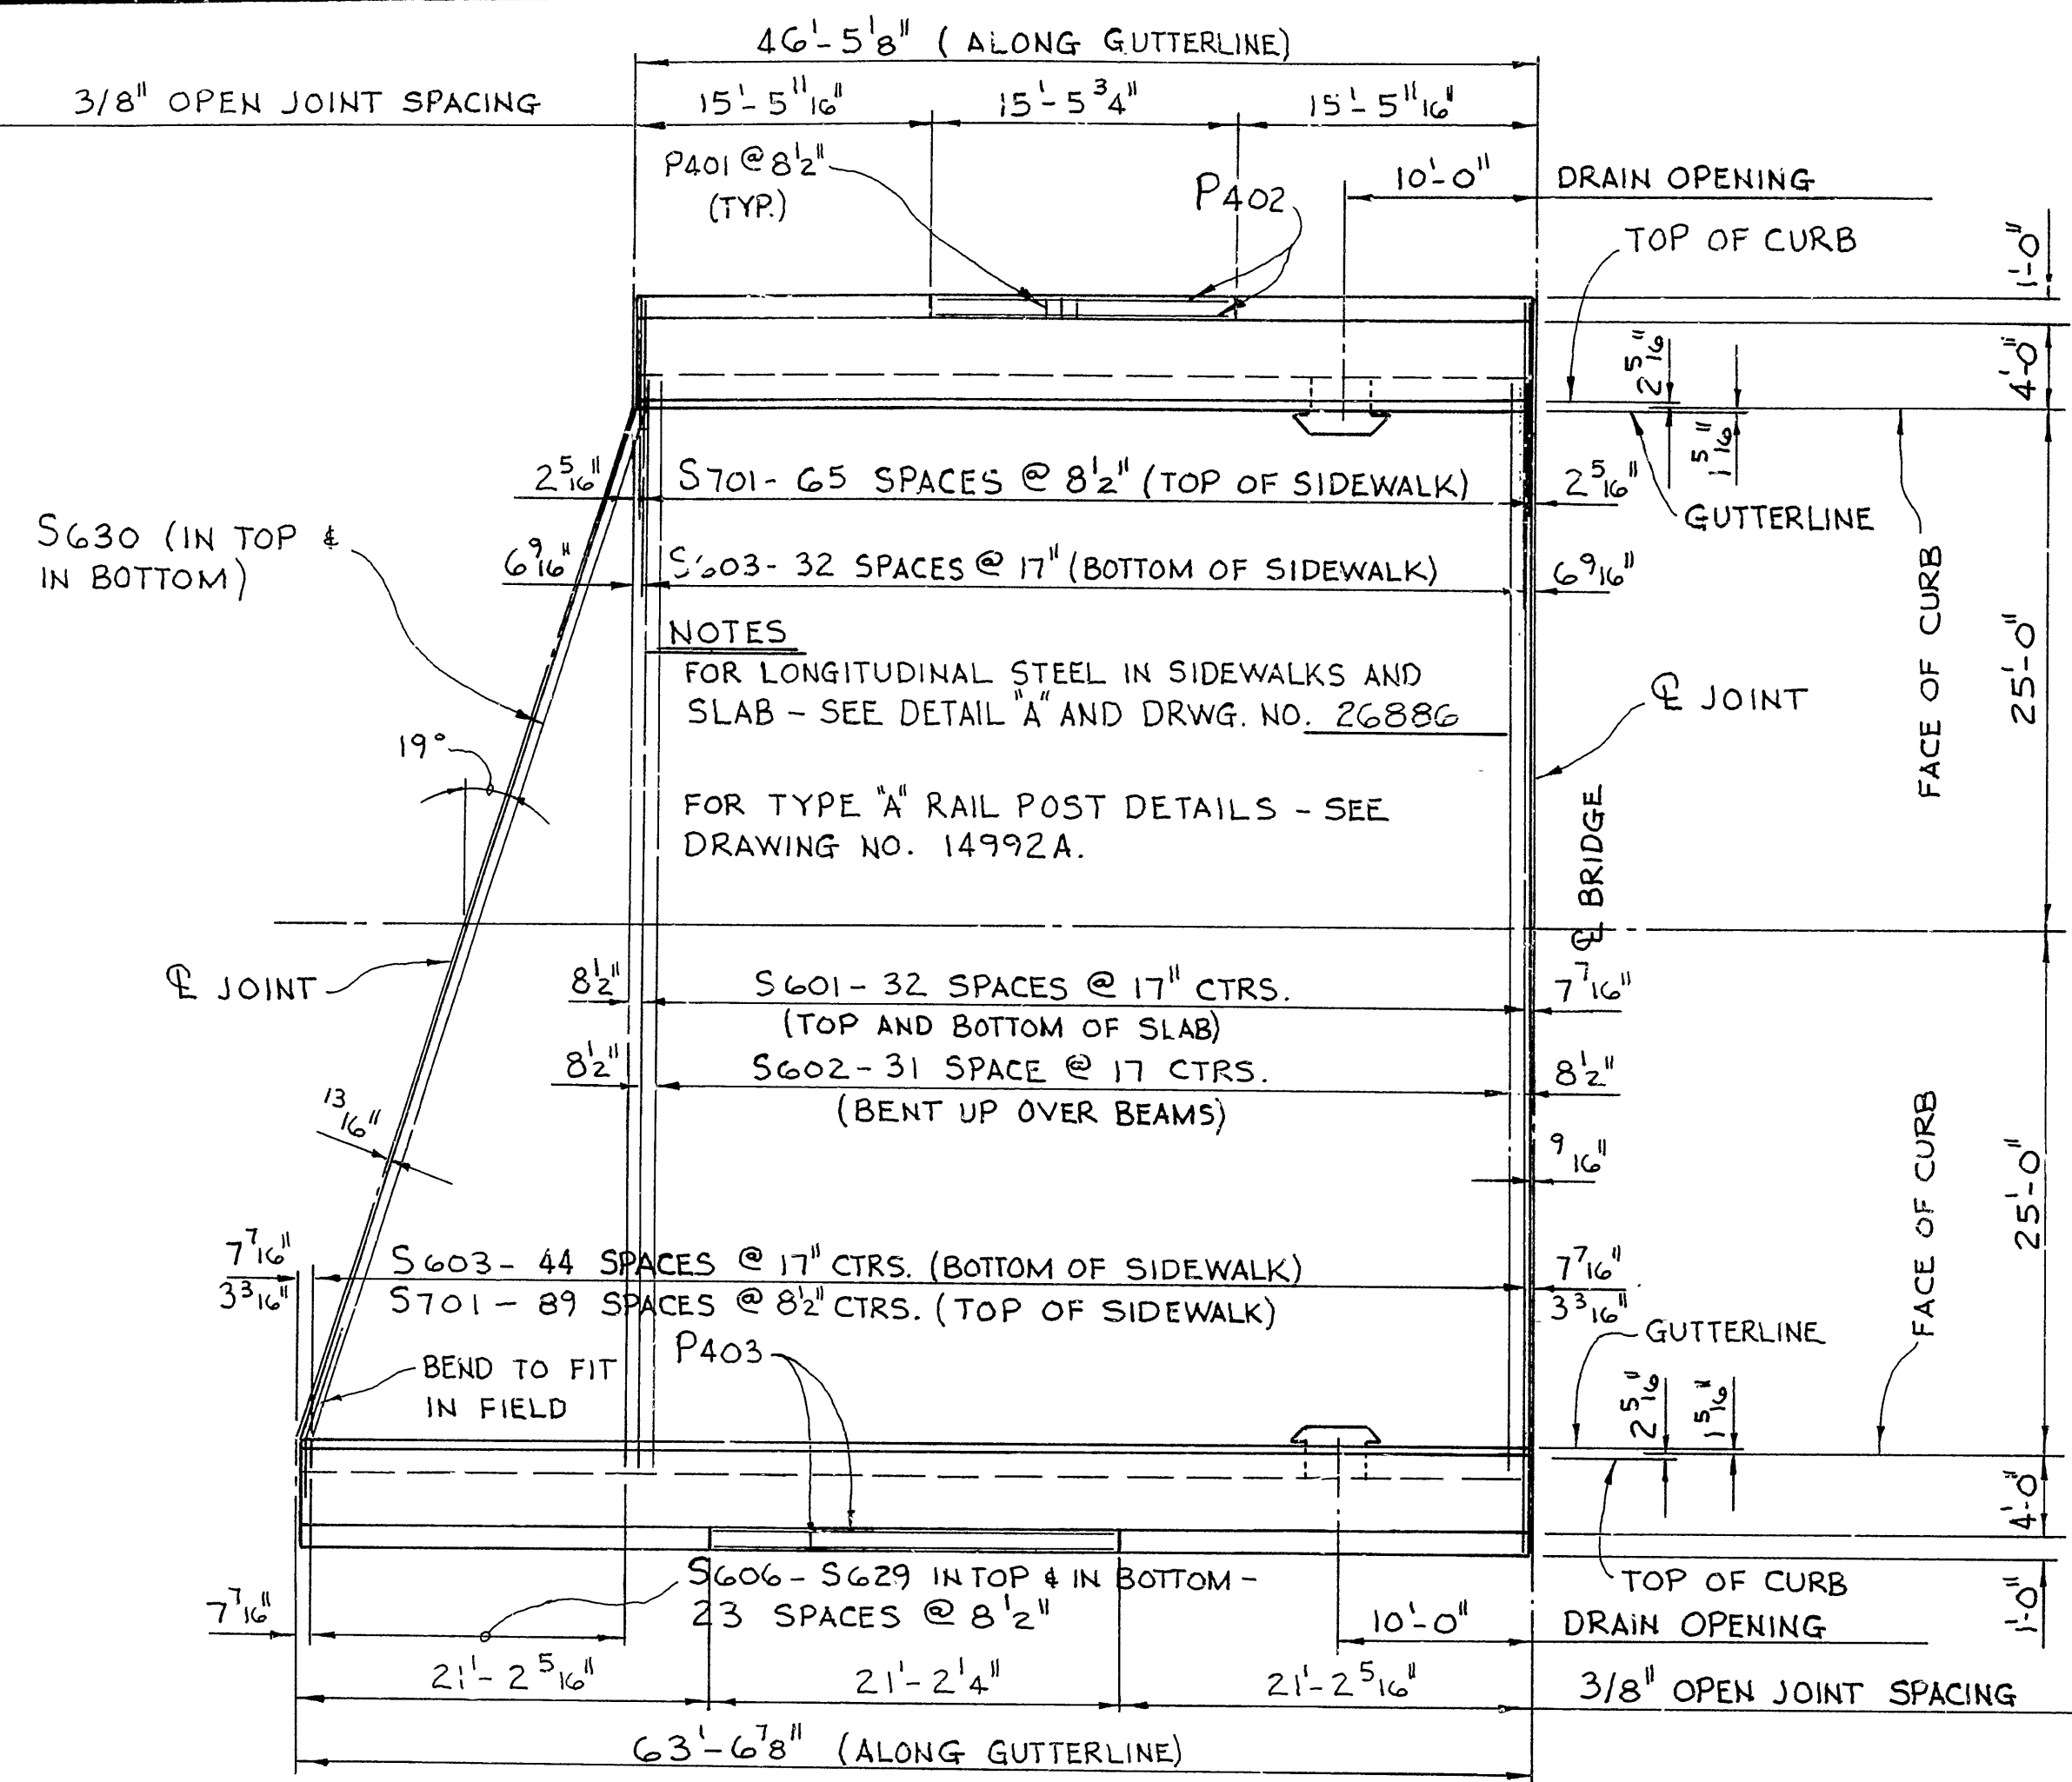 46'-5 1/8" (ALONG GUTTERLINE)
3/8" OPEN JOINT SPACING
15'-5 11/16"
15'-5 3/4"
15'-5 11/16"
P401 @ 8 1/2"
(TYP.)
P402
10'-0"
DRAIN OPENING
TOP OF CURB
1'-0"
4'-0"
2 5/16"
1 5/16"
2 5/16"
S701- 65 SPACES @ 8 1/2" (TOP OF SIDEWALK)
2 5/16"
GUTTERLINE
S630 (IN TOP &
IN BOTTOM)
6 9/16"
S603- 32 SPACES @ 17" (BOTTOM OF SIDEWALK)
6 9/16"
FACE OF CURB
25'-0"
NOTES
FOR LONGITUDINAL STEEL IN SIDEWALKS AND
SLAB - SEE DETAIL "A" AND DRWG. NO. 26886
℄ JOINT
19°
FOR TYPE "A" RAIL POST DETAILS - SEE
DRAWING NO. 14992A.
℄ BRIDGE
℄ JOINT
8 1/2"
S601-32 SPACES @ 17" CTRS.
(TOP AND BOTTOM OF SLAB)
7 7/16"
8 1/2"
S602-31 SPACE @ 17 CTRS.
(BENT UP OVER BEAMS)
8 1/2"
13/16"
9/16"
FACE OF CURB
25'-0"
7 7/16"
S603- 44 SPACES @ 17" CTRS. (BOTTOM OF SIDEWALK)
7 7/16"
3 3/16"
S701 - 89 SPACES @ 8 1/2" CTRS. (TOP OF SIDEWALK)
3 3/16"
GUTTERLINE
P403
BEND TO FIT
IN FIELD
2 5/16"
1 5/16"
4'-0"
S606 - S629 IN TOP & IN BOTTOM-
23 SPACES @ 8 1/2"
TOP OF CURB
7 7/16"
10'-0"
DRAIN OPENING
1'-0"
21'-2 5/16"
21'-2 1/4"
21'-2 5/16"
3/8" OPEN JOINT SPACING
63'-6 7/8" (ALONG GUTTERLINE)